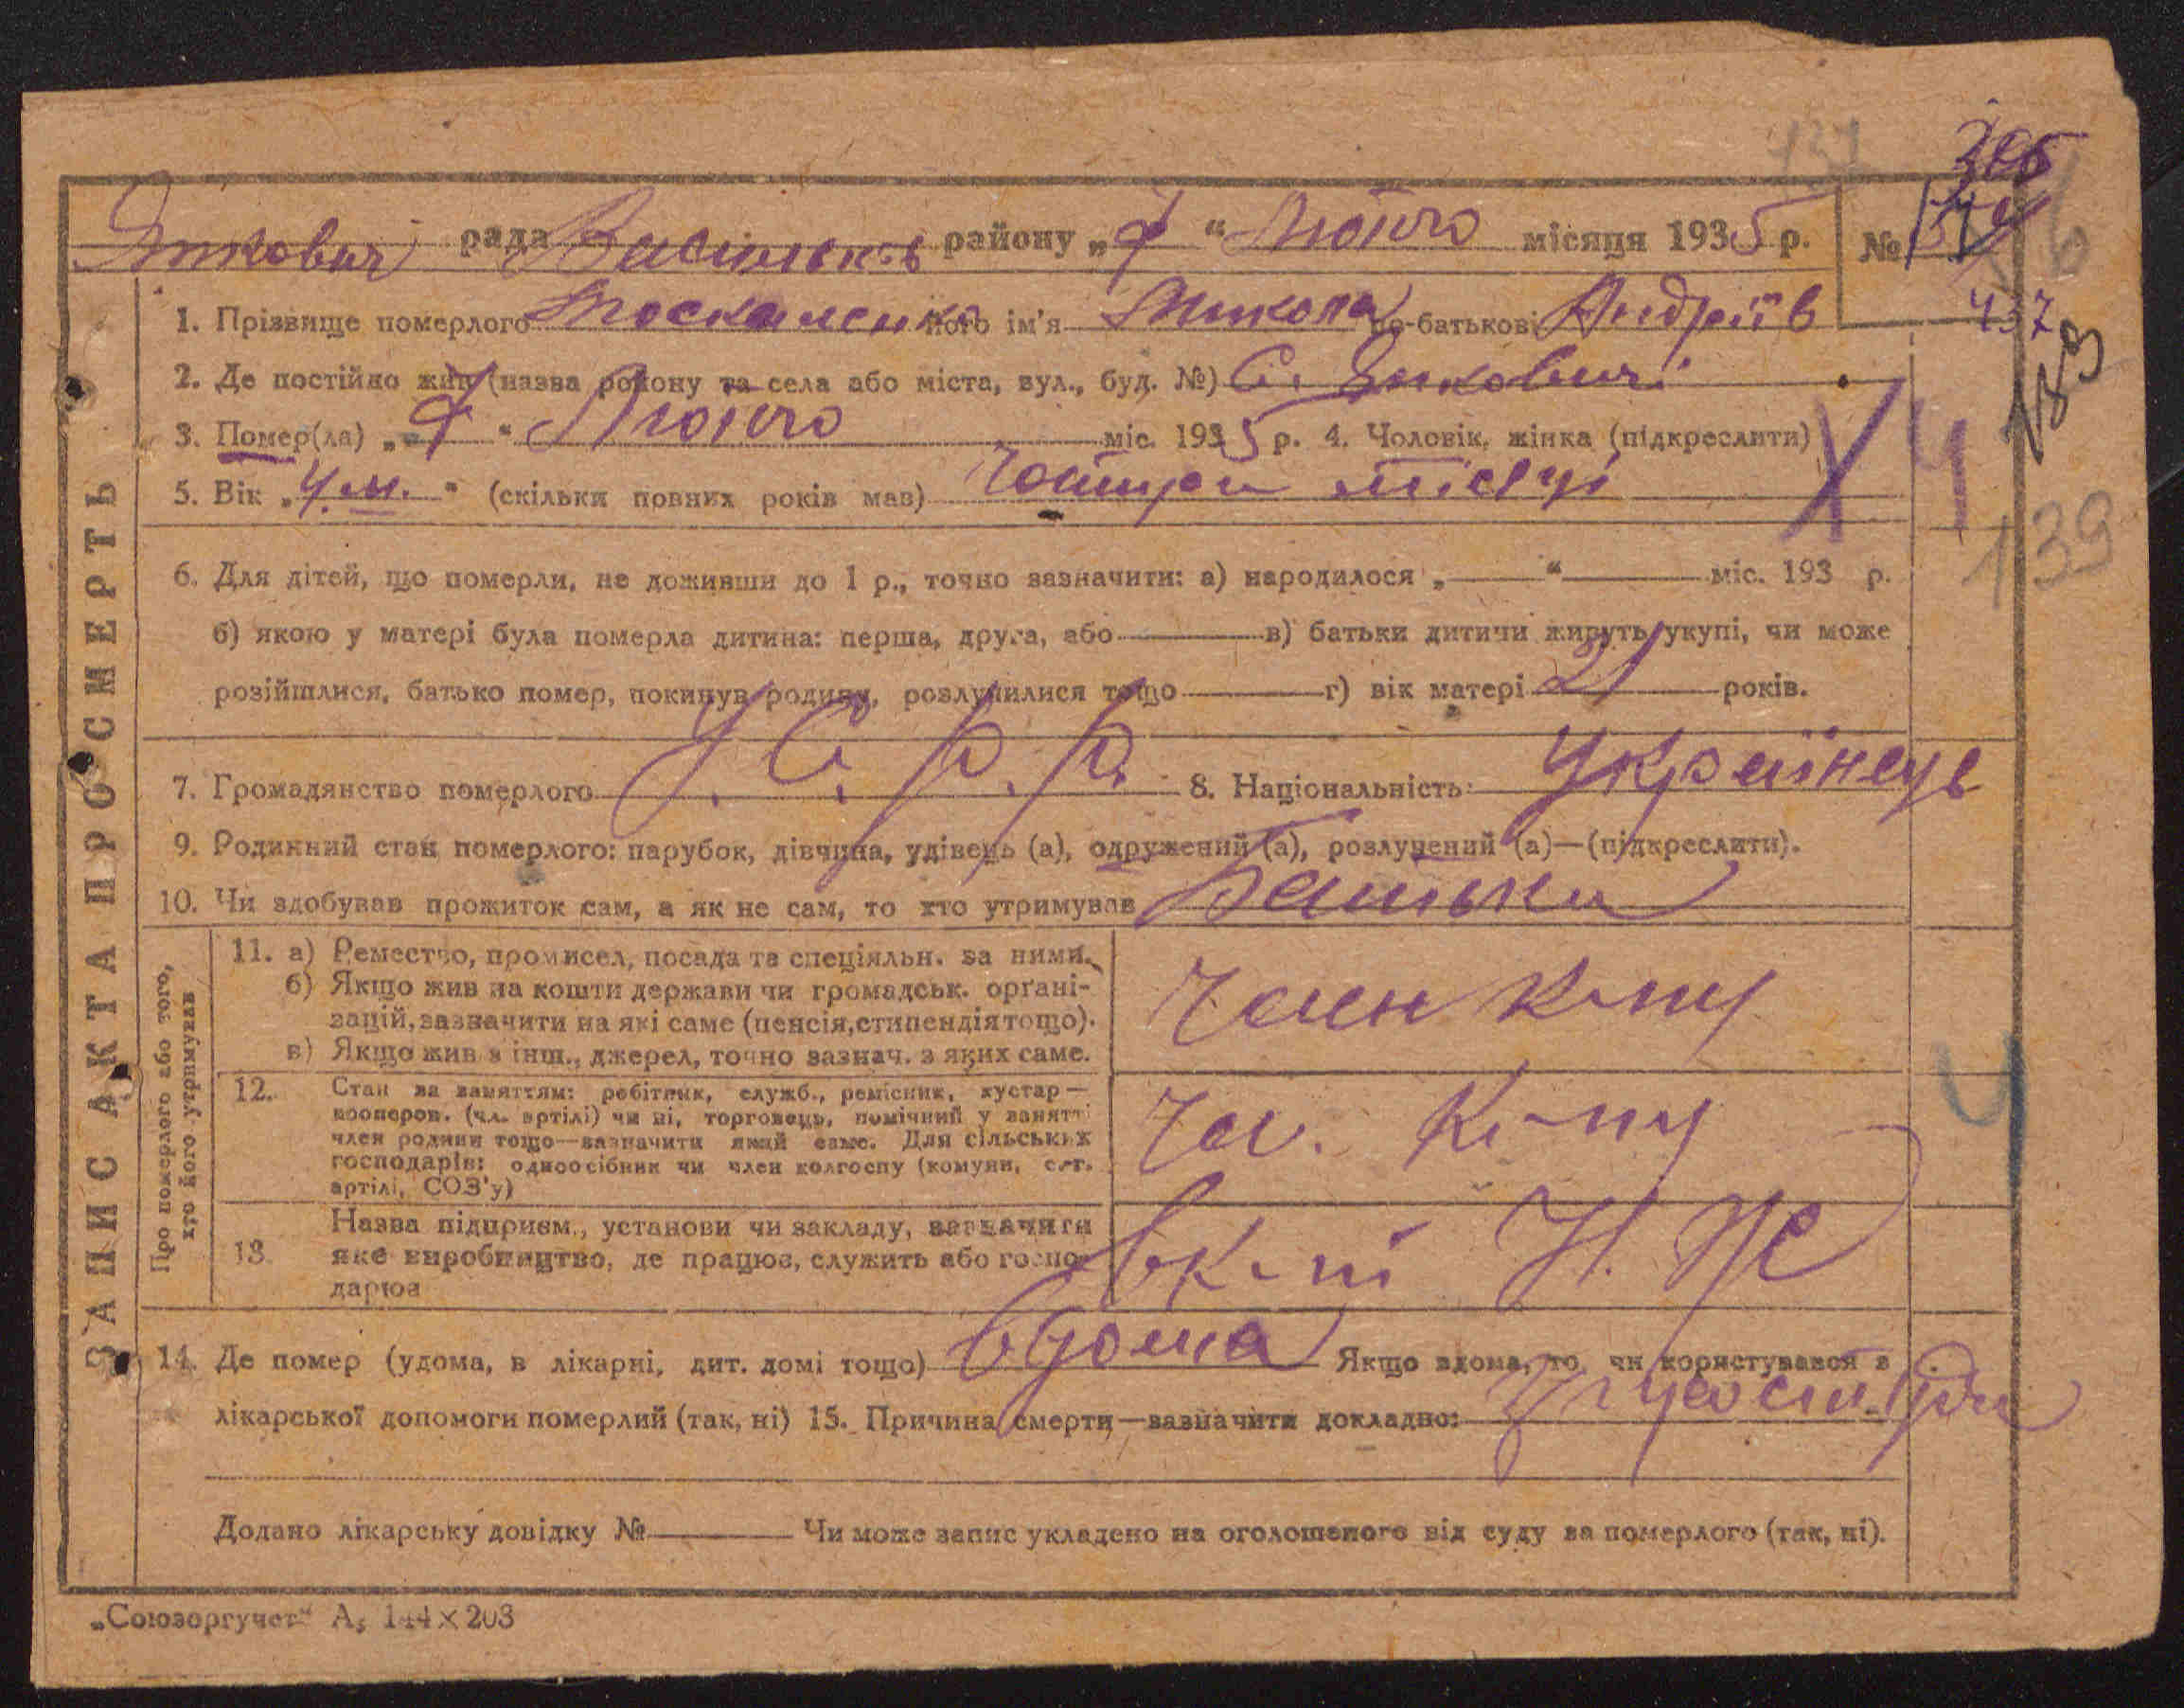 437
Янкович рада Васильків району „7“ Лютого місяця 1935 р. №
1. Прізвище померлого Москаленко його ім'я Микола по-батькові Андріїв
437
2. Де постійно жив (назва району та села або міста, вул., буд. №) С. Янковичі
183
3. Помер(ла) „7“ Лютого міс. 1935 р. 4. Чоловік, жінка (підкреслити) Ч
5. Вік „4 м.“ (скільки повних років мав) чотири місяці
139
6. Для дітей, що померли, не доживши до 1 р., точно зазначити: а) народилося „ “ міс. 193 р.
б) якою у матері була померла дитина: перша, друга, або в) батьки дитичи живуть укупі, чи може
розійшлися, батько помер, покинув родину, розлучилися тощо г) вік матері 21 років.
7. Громадянство померлого У.С.Р.Р. 8. Національність: Українець
9. Родинний стан померлого: парубок, дівчина, удівець (а), одружений (а), розлучений (а)—(підкреслити).
10. Чи здобував прожиток сам, а як не сам, то хто утримував Батьки
ЗАПИС АКТА ПРО СМЕРТЬ
Про померлого або того,
хто його утримував
11. а) Ремество, промисел, посада та спеціяльн. за ними.
б) Якщо жив на кошти держави чи громадськ. орґані-
зацій, зазначити на які саме (пенсія, стипендія тощо).
в) Якщо жив з інш., джерел, точно зазнач. з яких саме.
Член к-пу
12. Стан за заняттям: робітник, служб., ремісник, кустар—
кооперов. (чл. артілі) чи ні, торговець, помічний у занятті
член родини тощо—зазначити який саме. Для сільських
господарів: одноосібник чи член колгоспу (комуни, с.-г.
артілі, СОЗ'у)
Чл. К-пу
4
13. Назва підприєм., установи чи закладу, зазначити
яке виробництво, де працює, служить або госпо-
дарює
в к-пі Н. Ж
14. Де помер (удома, в лікарні, дит. домі тощо) вдома Якщо вдома, то чи користувався з
лікарської допомоги померлий (так, ні) 15. Причина смерти—зазначити докладно:
Додано лікарську довідку № Чи може запис укладено на оголошеного від суду за померлого (так, ні).
„Союзоргучет“ А₅ 144×203